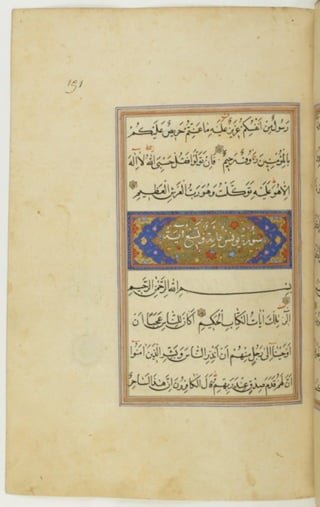 رَسُولٌ مِنْ اَنْفُسِكُمْ عَزِيزٌ عَلَيْهِ مَا عَنِتُّمْ حَرِيصٌ عَلَيْكُمْ
بِالْمُؤْمِنِينَ رَؤُفٌ رَحِيمٌ فَاِنْ تَوَلَّوْا فَقُلْ حَسْبِيَ اللهُ لَا اِلٰهَ
اِلَّا هُوَ عَلَيْهِ تَوَكَّلْتُ وَهُوَ رَبُّ الْعَرْشِ الْعَظِيمِ
سورة يونس مائة وتسع آية
بِسْمِ اللهِ الرَّحْمٰنِ الرَّحِيمِ
الٓرٰ تِلْكَ اٰيَاتُ الْكِتَابِ الْحَكِيمِ اَكَانَ لِلنَّاسِ عَجَبًا اَنْ
اَوْحَيْنَا اِلٰى رَجُلٍ مِنْهُمْ اَنْ اَنْذِرِ النَّاسَ وَبَشِّرِ الَّذِينَ اٰمَنُوا
اَنَّ لَهُمْ قَدَمَ صِدْقٍ عِنْدَ رَبِّهِمْ قَالَ الْكَافِرُونَ اِنَّ هٰذَا لَسَاحِرٌ